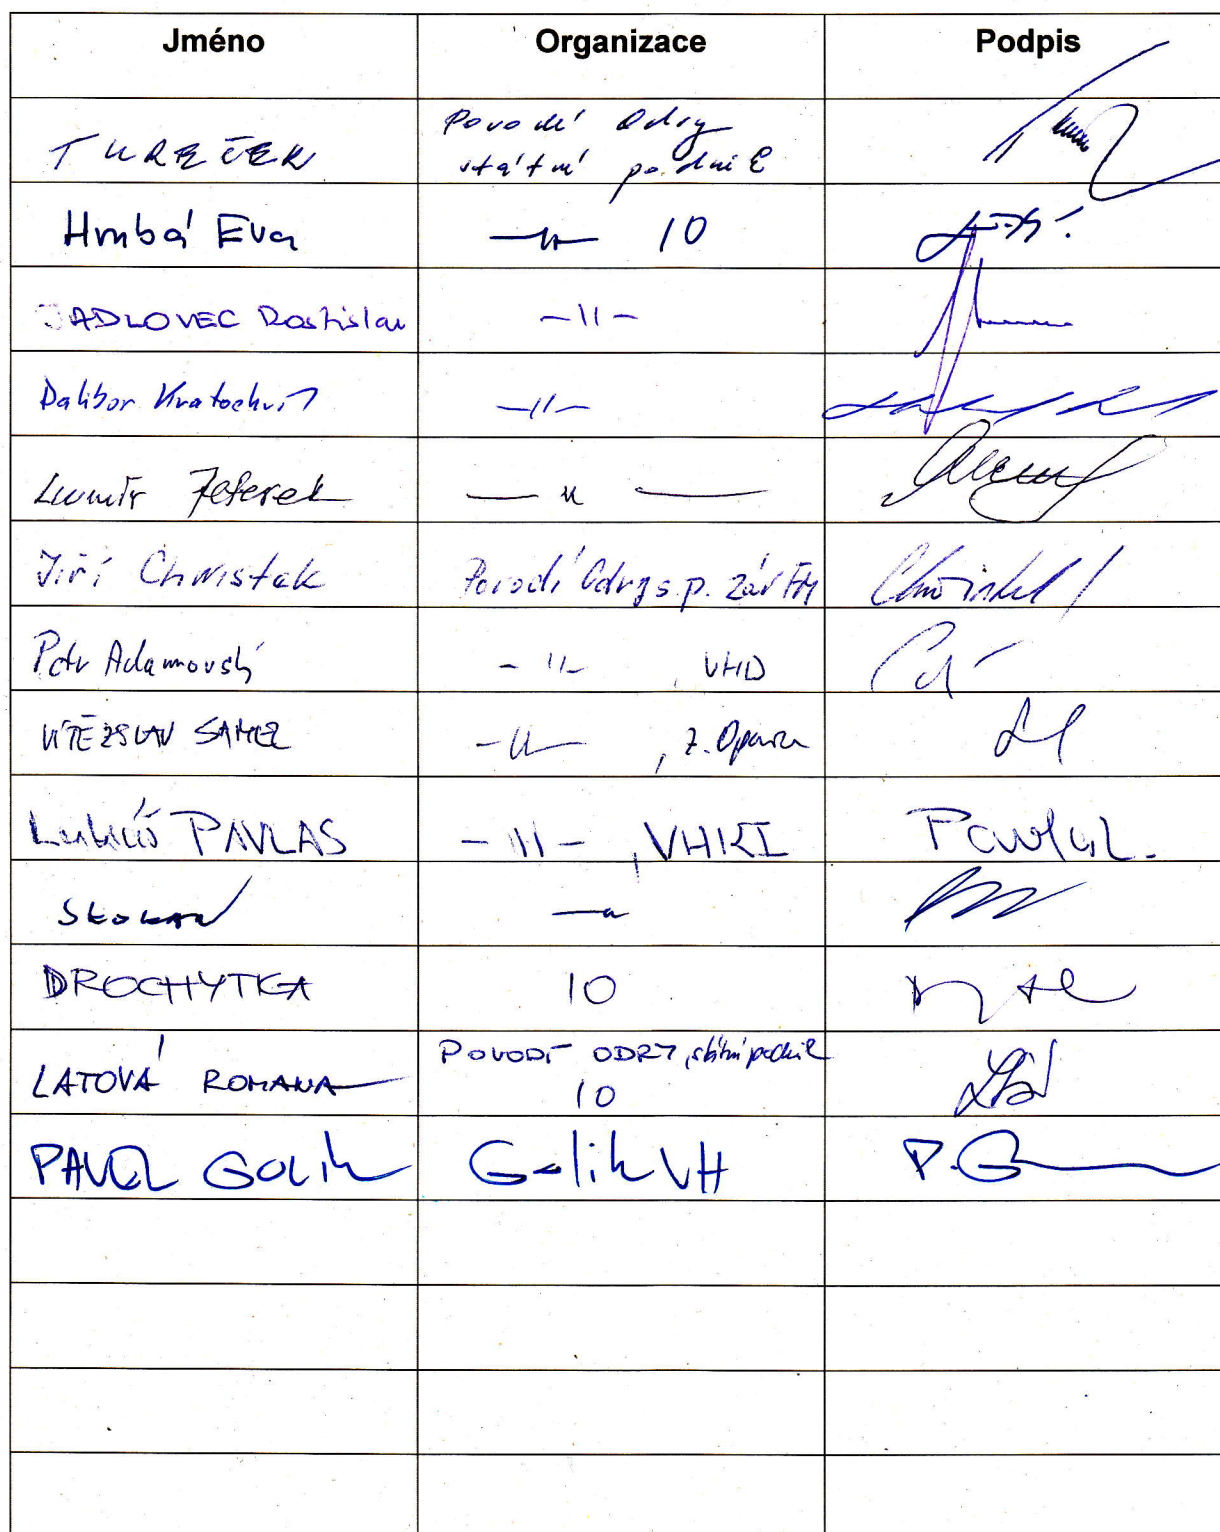 Jméno Organizace Podpis
TUREČEK Povodí Odry
státní podnik
Hrubá Eva —〃— 10
JADLOVEC Rostislav —〃—
Dalibor Kratochvíl —〃—
Lumír —〃—
Jiří Chwistek Povodí Odry s.p. záv FM
Petr Adamovský —〃— , VHD
VÍTĚZSLAV SAMEL —〃— , z. Opava
Lukáš PAVLAS —〃— , VHKI
SKOKAN —〃
DROCHYTKA 10
LATOVÁ ROMANA POVODÍ ODRY, státní podnik
10
PAVEL GOLIK Golik VH P.G